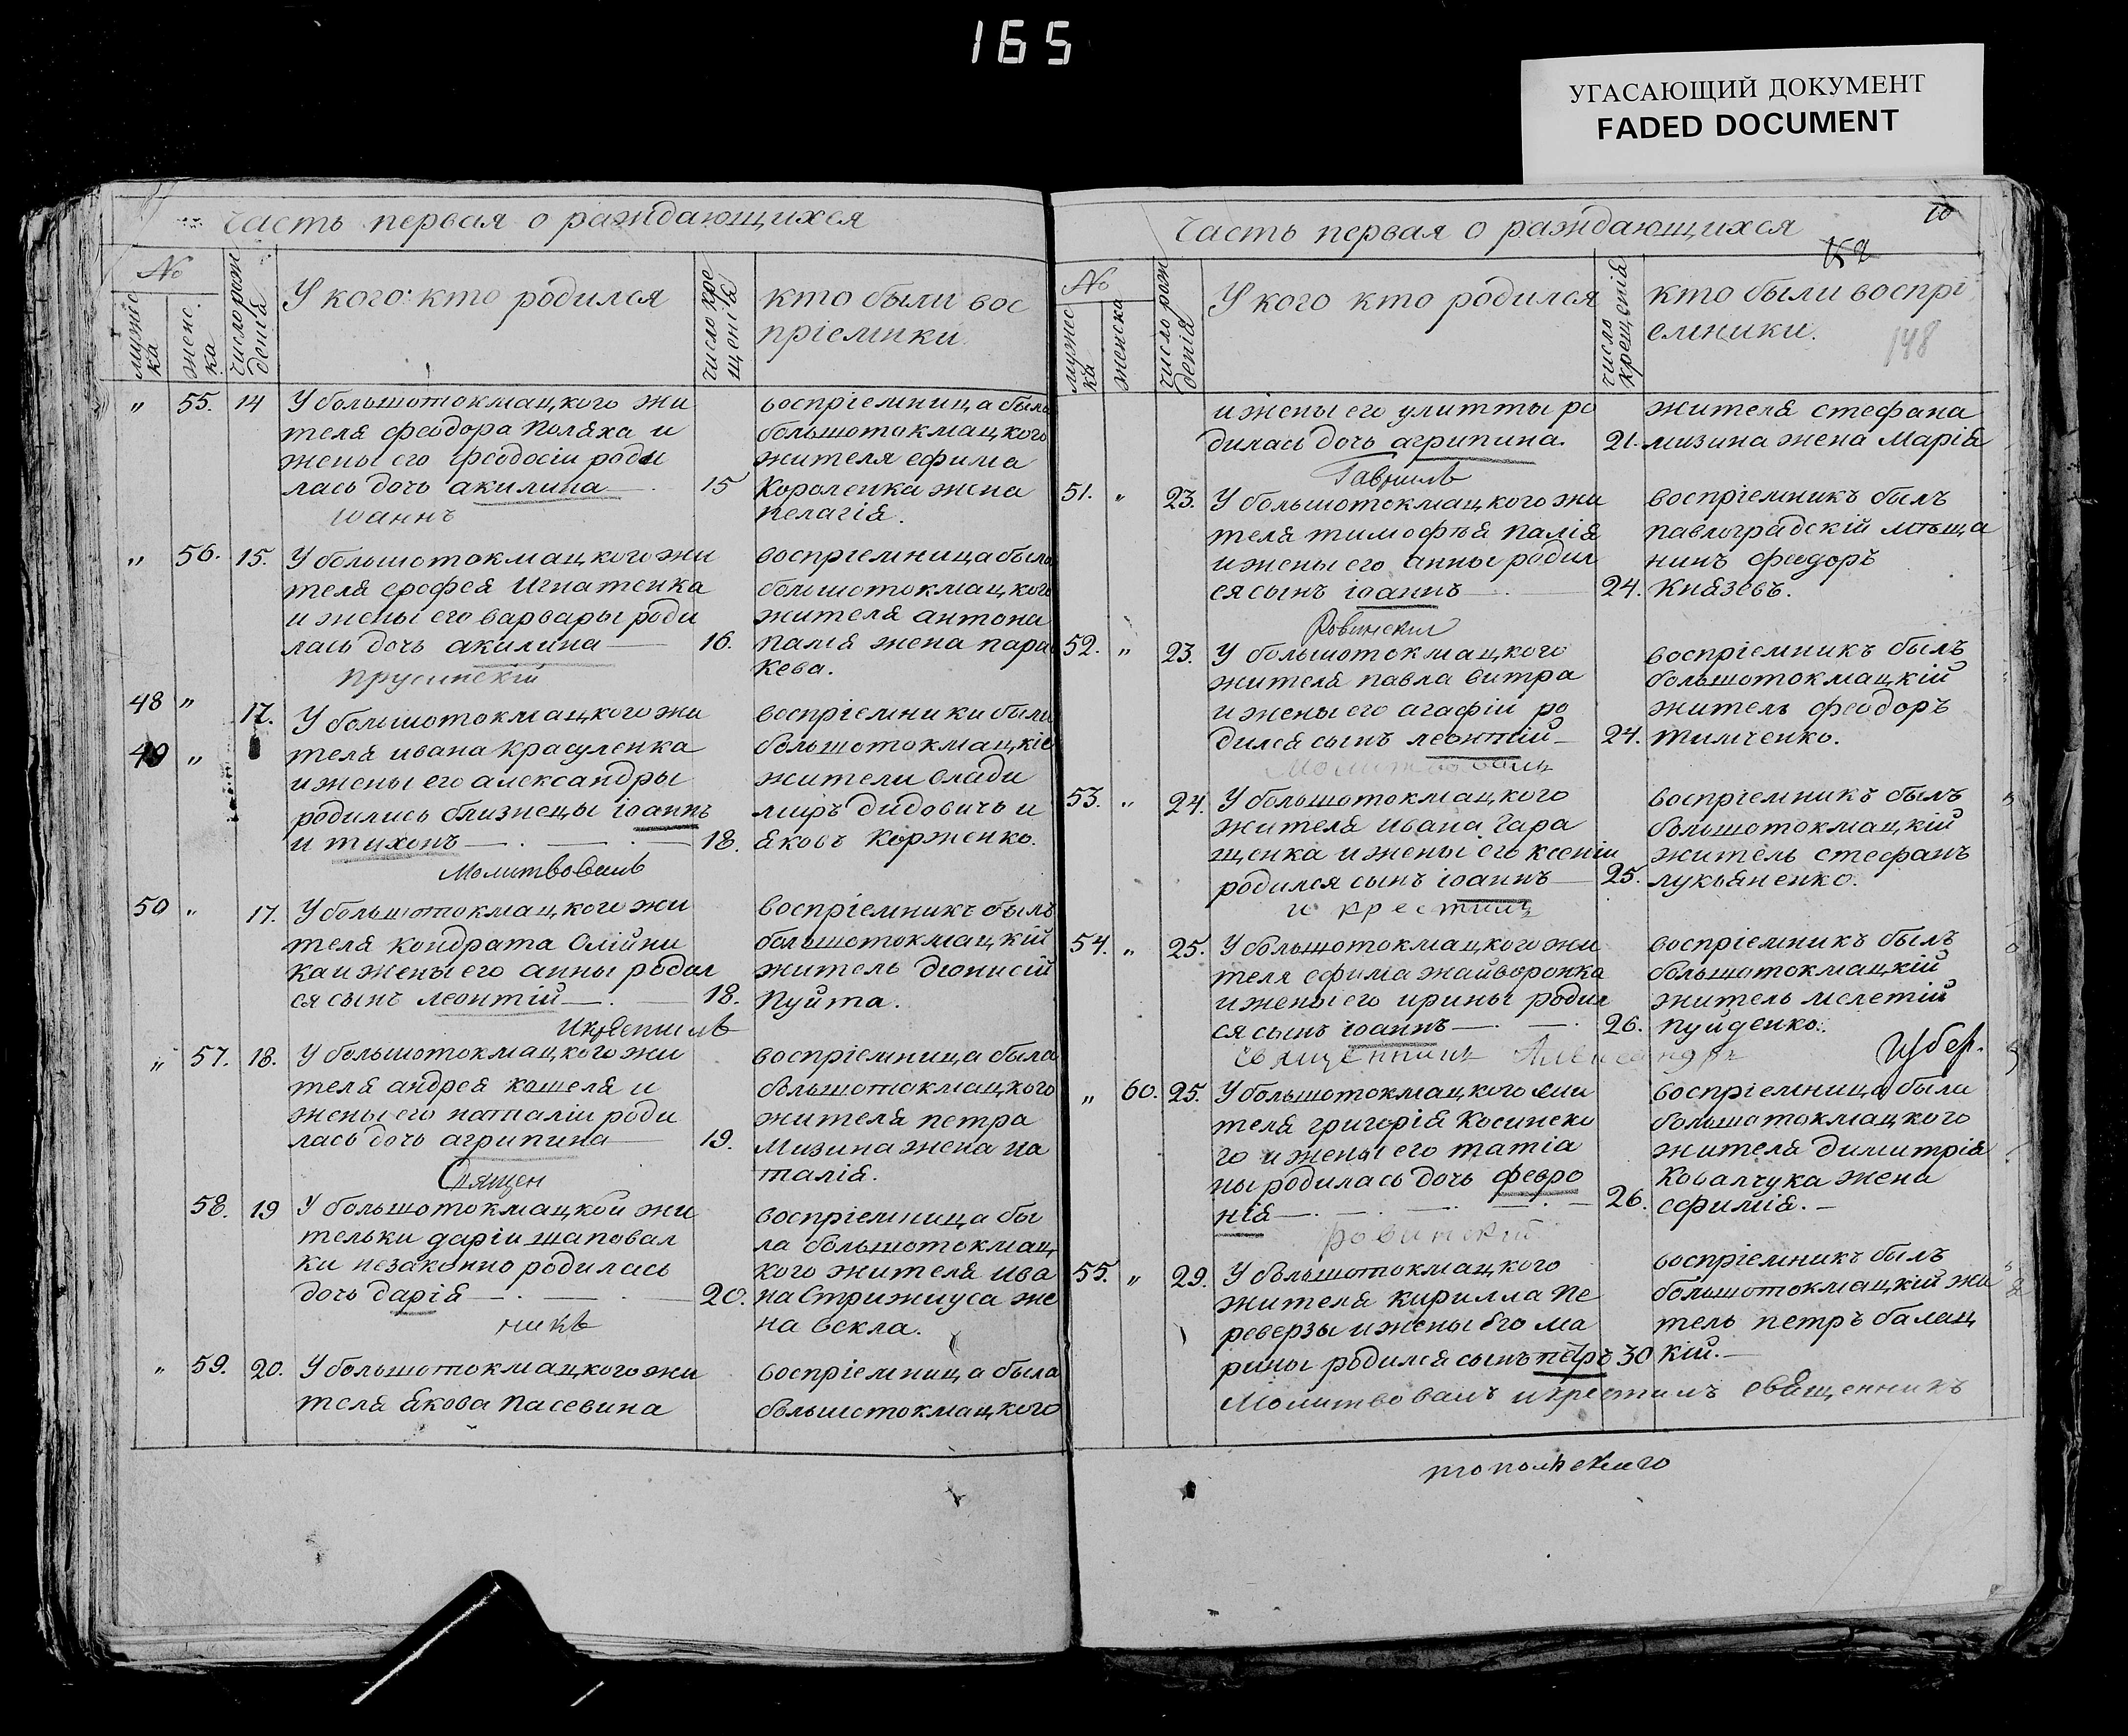 165
УГАСАЮЩИЙ ДОКУМЕНТ
FADED DOCUMENT
Часть первая о раждающихся
№
мужес
ка
женс.
ка.
число рож
денія
У кого: кто родился
число кре
щенія
кто были вос
пріемники
„ 55. 14 У большотокмацкого жи
теля феодора Поляха и
жены его феодосіи роди
лась дочь акилина 15
воспріемница была
большотокмацкого
жителя ефима
Короленка жена
пелагія.
Іоаннъ
„ 56. 15. У большотокмацкого жи
теля ерофея Игнатенка
и жены его варвары роди
лась дочь акилина 16.
воспріемница была
большотокмацкого
жителя антона
палія жена парас
кева.
Прусинскій
48 „ 17. У большотокмацкого жи
49 „ теля ивана красуленка
и жены его александры
родились близнецы іоаннъ
и тихонъ 18.
воспріемники были
большотокмацкіе
жители влади
миръ дидовичь и
яковъ Корженко.
Молитвовалъ
50 „ 17. У большотокмацкого жи
теля кондрата Олійни
ка и жены его анны родил
ся сынъ леонтій 18.
воспріемникъ былъ
большотокмацкій
житель діонисій
Пуйта.
И крестилъ
„ 57. 18. У большотокмацкого жи
теля андрея кошеля и
жены его наталіи роди
лась дочь агрипина 19.
воспріемница была
большотокмацкого
жителя петра
Мизина жена на
талія.
Священ
58. 19 У большотокмацкой жи
тельки даріи шаповал
ки незаконно родилась
дочь дарія 20.
воспріемница бы
ла большотокмац
кого жителя ива
на Стрижиуса же
на векла.
никъ
„ 59. 20. У большотокмацкого жи
теля якова пасевина
воспріемница была
большотокмацкого
Часть первая о раждающихся
10
148
№
мужес
ка
женска
число рож
денія
У кого кто родился
число
крещенія
кто были воспрі
емники.
и жены его улитты ро
дилась дочь агрипина. 21.
жителя стефана
мизина жена Марія
Гавріилъ
51. „ 23. У большотокмацкого жи
теля тимофѣя палія
и жены его анны родил
ся сынъ іоаннъ 24.
воспріемникъ былъ
павлоградскій мѣща
нинъ феодоръ
Князевъ.
Ровинский
52. „ 23. У большотокмацкого
жителя павла витра
и жены его агафіи ро
дился сынъ леонтій 24.
воспріемникъ былъ
большотокмацкій
житель феодоръ
тимченко.
Молитвовалъ
53. „ 24. У большотокмацкого
жителя ивана гара
щенка и жены его ксеніи
родился сынъ іоаннъ 25.
воспріемникъ былъ
большотокмацкій
житель стефанъ
лукьяненко.
и крестилъ
54. „ 25. У большотокмацкого жи
теля ефима жайворонка
и жены его ирины родил
ся сынъ іоаннъ 26.
воспріемникъ былъ
большотокмацкій
житель мелетій
пуйденко.
священникъ Александръ
„ 60. 25. У большотокмацкого жи
теля григорія Косинско
го и жены его татіа
ны родилась дочь февро
нія 26.
воспріемница была
большотокмацкого
жителя димитрія
Ковалчука жена
ефимія.
ровинскій
55. „ 29. У большотокмацкого
жителя кирилла пе
реверзы и жены его ма
рины родился сынъ петръ 30
воспріемникъ былъ
большотокмацкій жи
тель петръ балац
кій.
Молитвовалъ и крестилъ священникъ